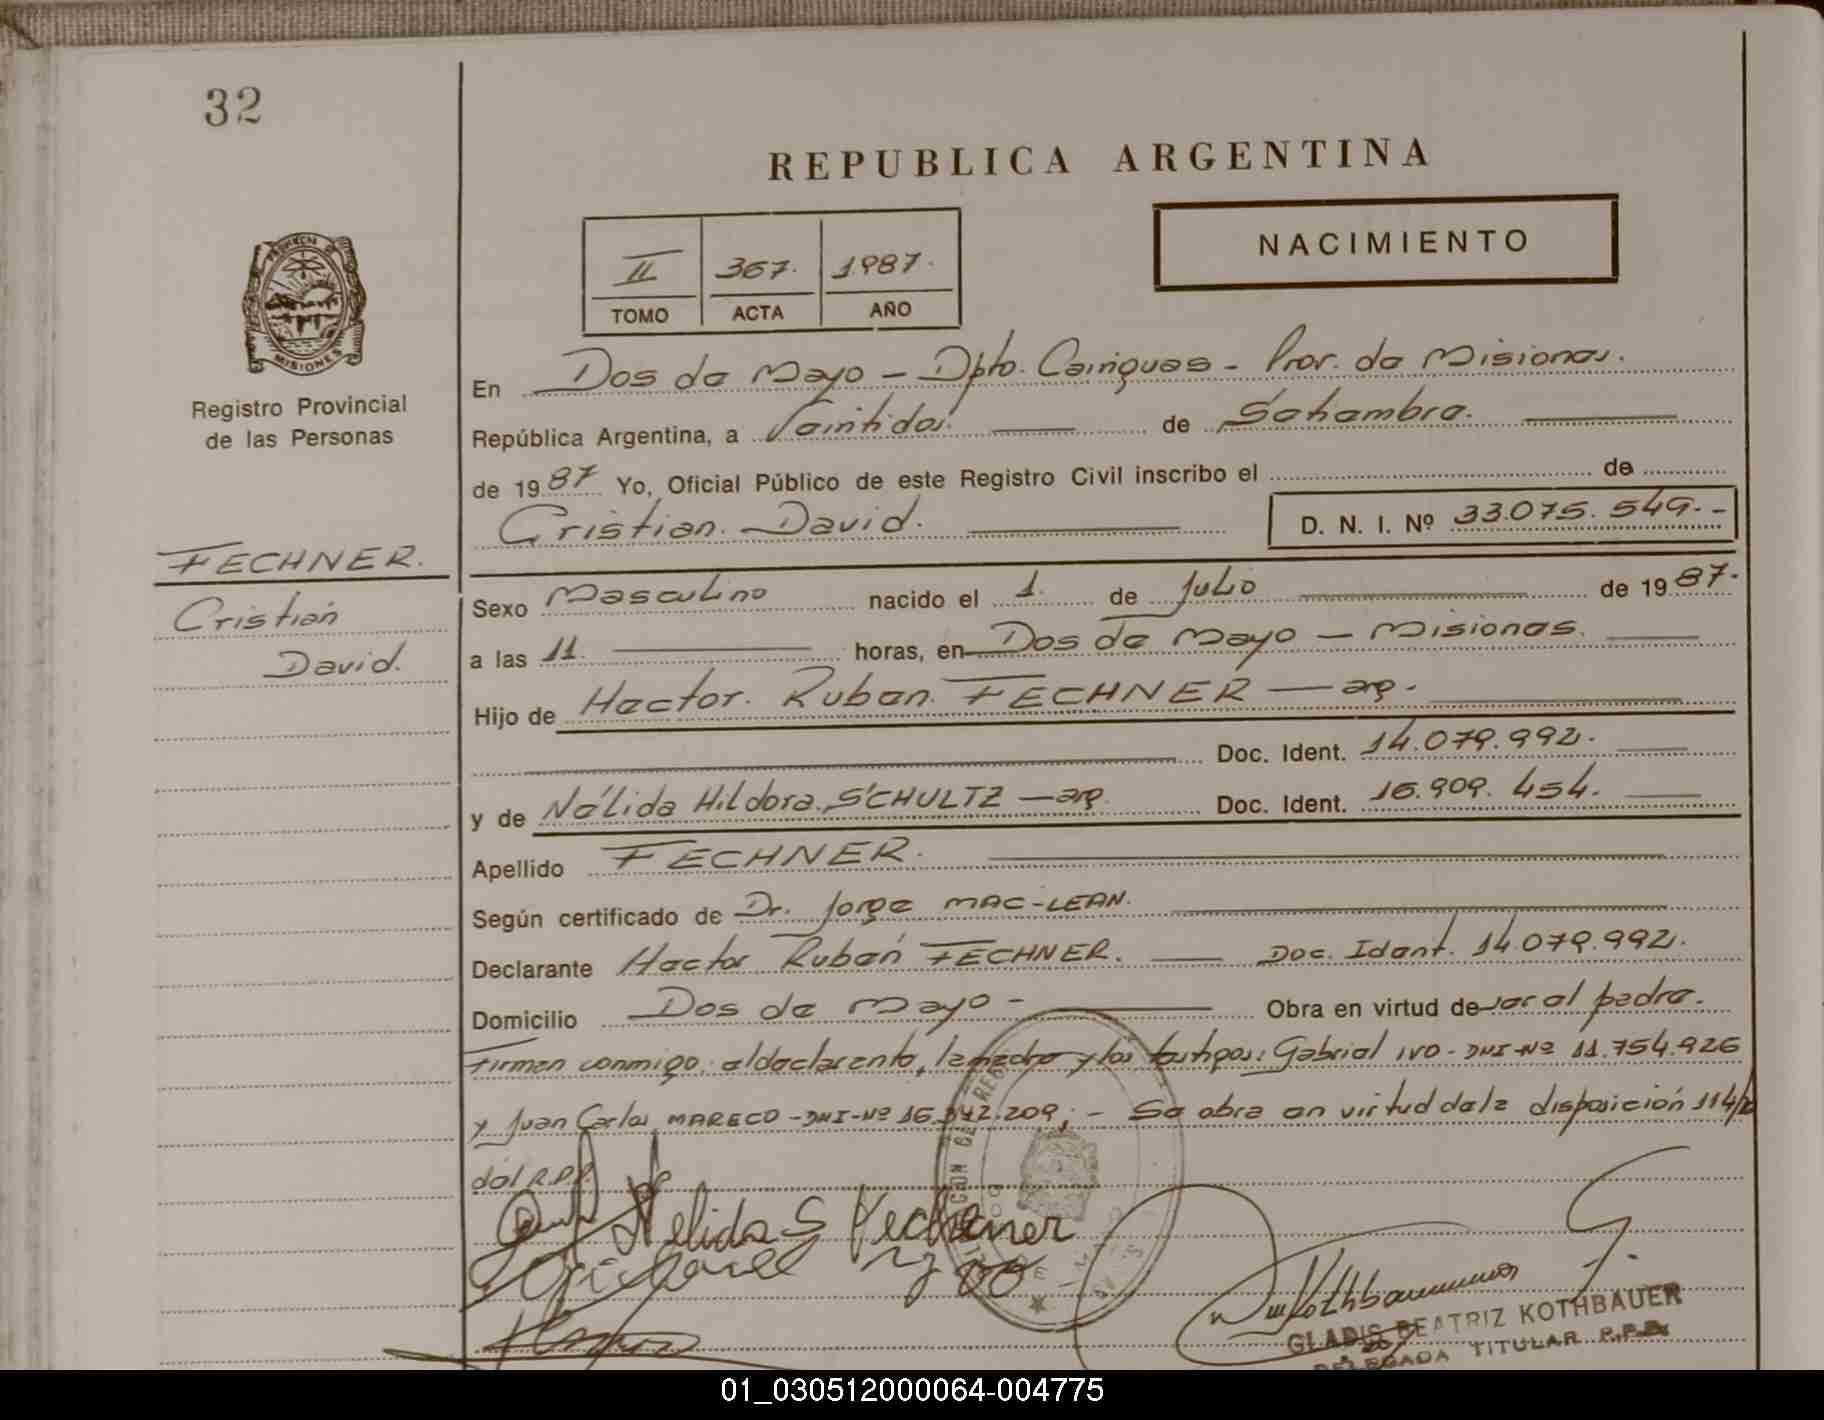 32
REPUBLICA ARGENTINA
NACIMIENTO
II 367. 1987.
TOMO ACTA AÑO
MISIONES
Registro Provincial
de las Personas
En Dos de Mayo - Dpto. Cainguas - Prov. de Misiones.
República Argentina, a Veintidos. de Setiembre.
de 1987 Yo, Oficial Público de este Registro Civil inscribo el de
Cristian. David. D. N. I. Nº 33.075.549.-
FECHNER.
Cristián
David.
Sexo Masculino nacido el 1. de Julio de 1987.
a las 11. horas, en Dos de Mayo - Misiones.
Hijo de Hector. Ruben. FECHNER — arg.
Doc. Ident. 14.079.992.
y de Nélida Hildora. SCHULTZ — arg. Doc. Ident. 16.909.454.
Apellido FECHNER.
Según certificado de Dr. Jorge MAC-LEAN.
Declarante Hector Rubén FECHNER. Doc. Ident. 14.079.992.
Domicilio Dos de Mayo - Obra en virtud de ser el padre.
Firman conmigo, el declarante, la madre y los testigos: Gabriel IVO - DNI-Nº 11.754.926
y Juan Carlos MARECO - DNI-Nº 16.942.209. - Se obra en virtud de la disposición 114/
del R.P.P.
Nelida S Fechner
Kothbauer
GLADIS BEATRIZ KOTHBAUER
DELEGADA TITULAR R.P.P.
01_030512000064-004775